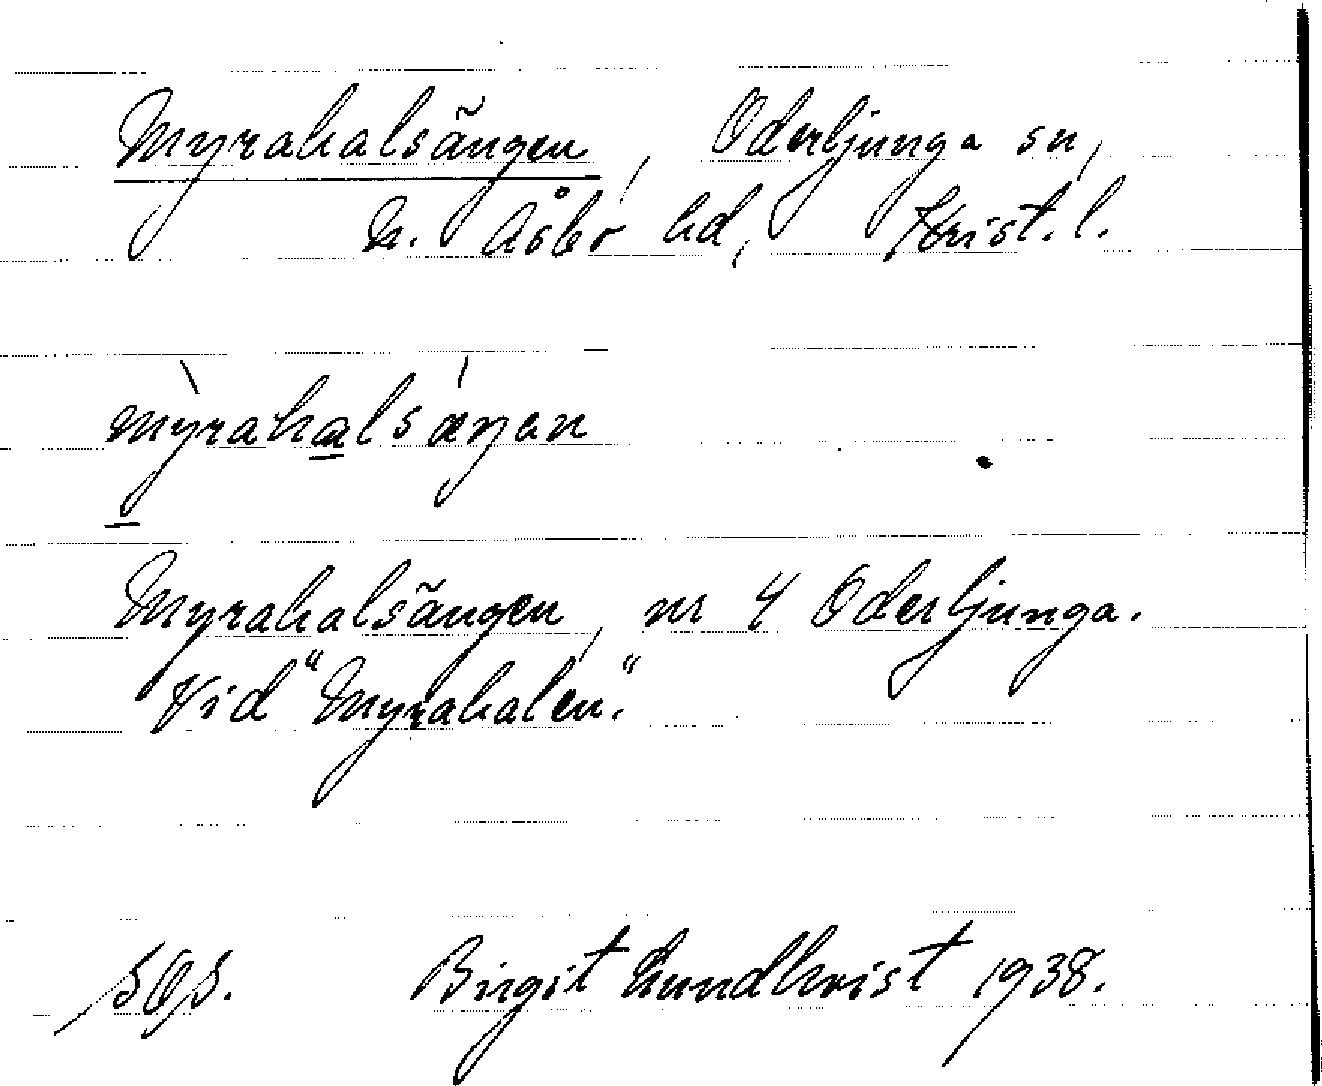 Myrahalsängen, Oderljunga sn,
N. Åsbo hd, Krist. l.
mỳrahalsáŋan
Myrahalsängen, nr 4 Oderljunga.
Vid "Myrahalen."
Birgit Lundkvist 1938.